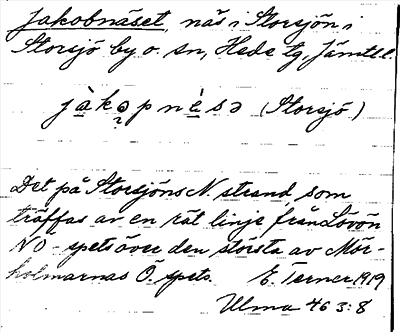 Jakobnäset, näs i Storsjön i
Storsjö by o. sn, Hede tg, Jämtl l.
jàkəpnèsə (Storsjö)
Det på Storsjöns N strand, som
träffas av en rät linje från Lövön
NO-spets över den största av Mör-
holmarnas Ö. spets. E. Terner 1919
Ulma 463:8